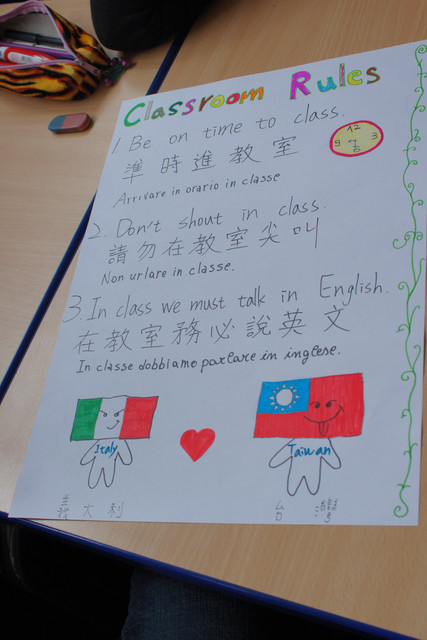 Classroom Rules
1 Be on time to class.
準時進教室
12
9 3
6
Arrivare in orario in classe
2. Don't shout in class.
請勿在教室尖叫
Non urlare in classe.
3. In class we must talk in English.
在教室務必說英文
In classe dobbiamo parlare in inglese.
Italy
Taiwan
義大利
台灣